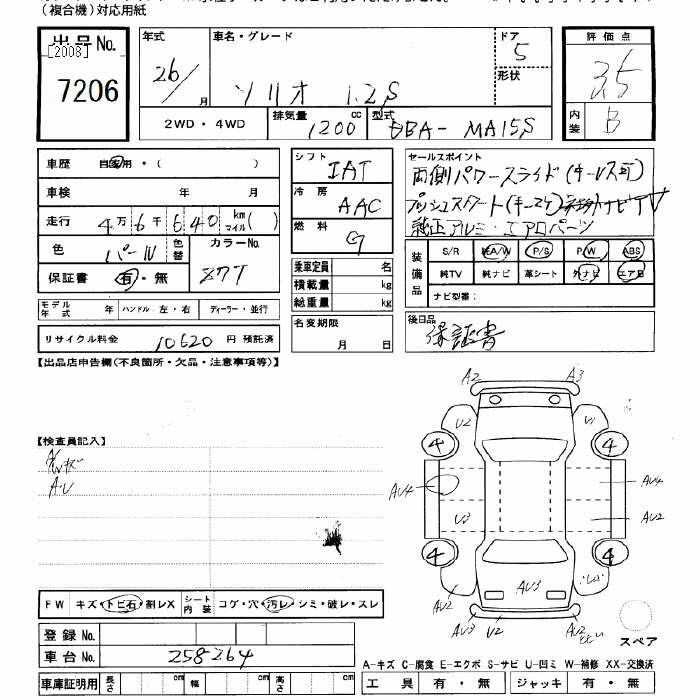 (複合機)対応用紙
出品No.
[2008]
7206
年式
26/
月
車名・グレード
ソリオ 1.2S
ドア
5
形状
評価点
3.5
内装
B
2WD・4WD
排気量
1200
cc
型式
DBA-MA15S
車歴
自家用・( )
車検 年 月
走行
4万6千640
km
マイル( )
色
パール
色替
カラーNo.
Z7T
保証書
有・無
シフト
IAT
冷房
AAC
燃料
G
乗車定員 名
積載量 kg
総重量 kg
名変期限
月 日
セールスポイント
両側パワースライド(キーレス可)
プッシュスタート(キー2ケ)
ナビTV
純正アルミ・エアロパーツ
装備品
S/R
純A/W
P/S
P/W
ABS
純TV
純ナビ
革シート
外ナビ
エアB
ナビ型番:
後日品
保証書
モデル年式 年
ハンドル 左・右
ディーラー・並行
リサイクル料金
10620
円 預託済
【出品店申告欄(不良箇所・欠品・注意事項等)】
【検査員記入】
AU
A2
A3
U2
U1
4
4
AU4
AU4
U3
AU2
4
4
AU3
AU2
AU3
U2
AU2
スペア
FW
キズ・トビ石・割レX
シート内装
コゲ・穴・汚レ・シミ・破レ・スレ
登録No.
車台No.
258264
車庫証明用
長さ
cm
幅
cm
高さ
cm
A-キズ C-腐食 E-エクボ S-サビ U-凹ミ W-補修 XX-交換済
工具 有・無
ジャッキ 有・無